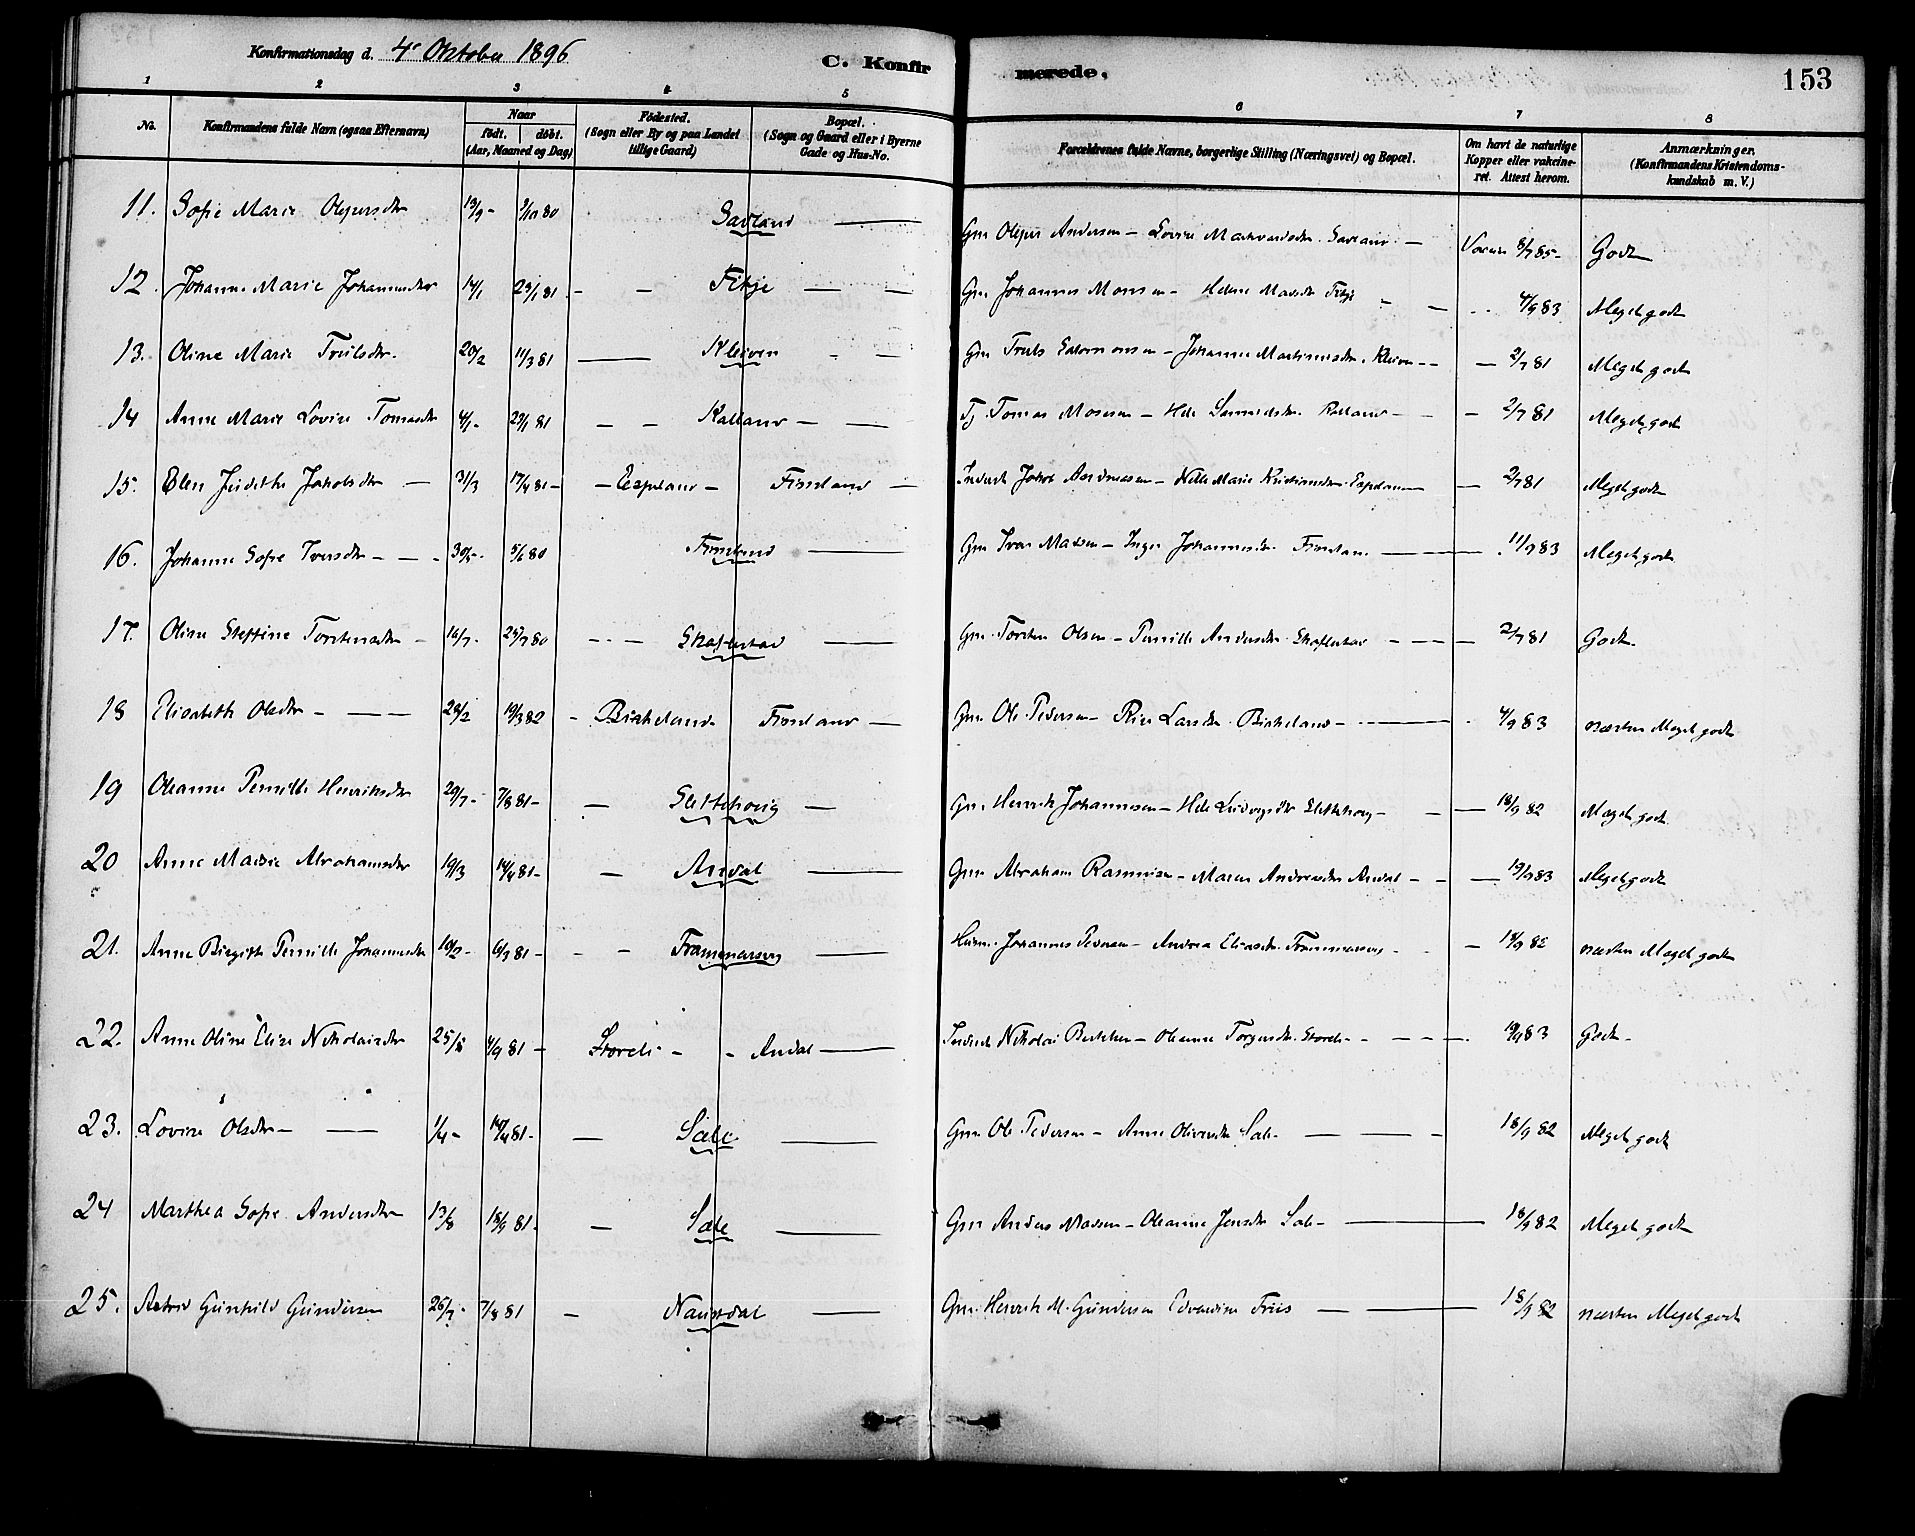 Konfirmationsdag d. 4de Oktober 1896
C. Konfirmerede.
153
1 2 3 4 5 6 7 8
No. Konfirmandens fulde Navn (ogsaa Efternavn) Naar født. døbt. (Aar, Maaned og Dag) Fødested. (Sogn eller By og paa Landet tillige Gaard) Bopæl. (Sogn og Gaard eller i Byerne Gade og Hus-No. Forældrenes fulde Navne, borgerlige Stilling (Næringsvei) og Bopæl. Om havt de naturlige Kopper eller vakcineret. Attest herom. Anmærkninger. (Konfirmandens Kristendomskundskab m. V.)
11. Sofie Marie 19/9 - 3/10 80 Savland — Gm Andersen — Lovise Savland — 8/7 85 - Godt
12. Johanne Marie Johannesdtr 14/1 23/1 81 - — Fitje — — Gm Johannes Monsen — Helene Fitje — 4/9 83 Meget godt
13. Oline Marie Trulsdtr. 20/2 11/3 81 — Kleiven - - Gm Truls Salomonsen — Johanne Martinusdtr. Kleiven -- — 2/7 81 Meget godt
14 Anne Marie Lovise Tomasdtr 4/1 - 23/1 81 — — Kalland — — Tj. Tomas Mosesen — Kalland - - — 2/7 81 Meget godt
15. Elen Judithe Jakobsdtr — 31/3 17/4 81 - — Espeland — Fimland — Inderst Jakob Andreassen — Marie Kristiansdtr Espeland — 2/7 81 Meget godt
16. Johanne Sofie Iversdtr — — 30/5 - 5/6 80 Fimland — Gm Iver Madsen — Inger Johannesdtr Fimland — 11/9 83 Meget godt
17. Oline Steffine Torstensdtr - 16/7 - 25/7 80 — — Skaflestad — Gm Torsten Olsen — Pernille Andersdtr Skaflestad — — 2/7 81 Godt.
18 Elisabeth Olsdtr - — — 28/2 19/3 82 - Birkeland Fimland — Gm Ole Pedersen — Larsdtr Birkeland — 4/9 83 næsten Meget godt
19 Oleanne Pernille Henriksdtr 29/7 - 7/8 81 - — — Gm Henrik Johannesen — Ludvigsdtr — 18/9 82 Meget godt
20 Anne Abrahamsdtr 19/3 14/4 81 - — Andal — Gm Abraham Rasmusen — Andreasdtr Andal - - — 19/9 83 Meget godt
21. Anne Birgitte Pernille Johannesdtr 10/2 - 6/3 81 - - - Frammarsvig — Husm. Johannes Pedersen — Andrea Eliasdtr Frammarsvig - — 18/9 82 næsten Meget godt
22. Anne Oline Elise Nikolaisdtr 25/8 4/9 81 - Storeli - - Andal — Inderst Nikolai — Oleanne Torgersdtr. Storeli - - — 19/9 83 Godt -
23. Lovise Olsdtr - — 1/4 - 14/4 81 - — Sæle — Gm. Ole Pedersen — Anne Oliversdtr Sæle - — 18/9 82 Meget godt
24 Marthea Sofie Andersdtr 13/8 18/9 81 - — Sæle — Gm Anders Madsen — Oleanne Jensdtr Sæle - — 18/9 82 Meget godt
25. Astrid Gunhild Gundersen 26/7 - 7/8 81 — Naustdal — Gm. Henrik M. Gundersen Edvardine Friis — 18/9 82 næsten Meget godt